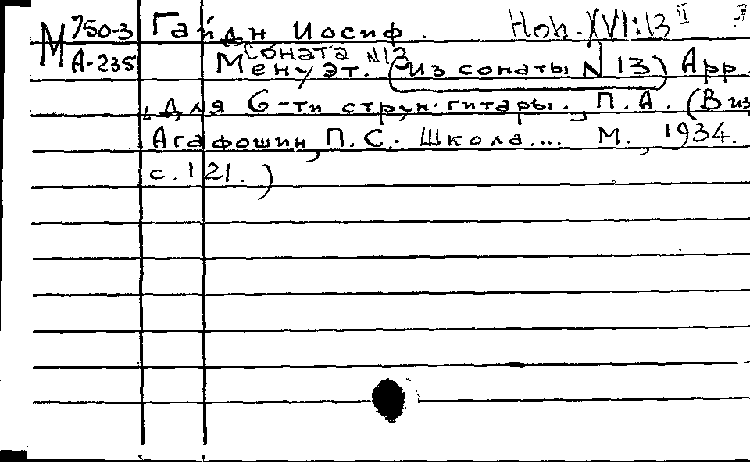 М 750-3 Гайдн Иосиф. Hob. XVI:13 II
А-235 Соната №13
Менуэт. (Из сонаты N 13) Арр.
для 6-ти струн. гитары., П.А. (В из
Агафошин, П.С. Школа... М., 1934.
с. 121.)